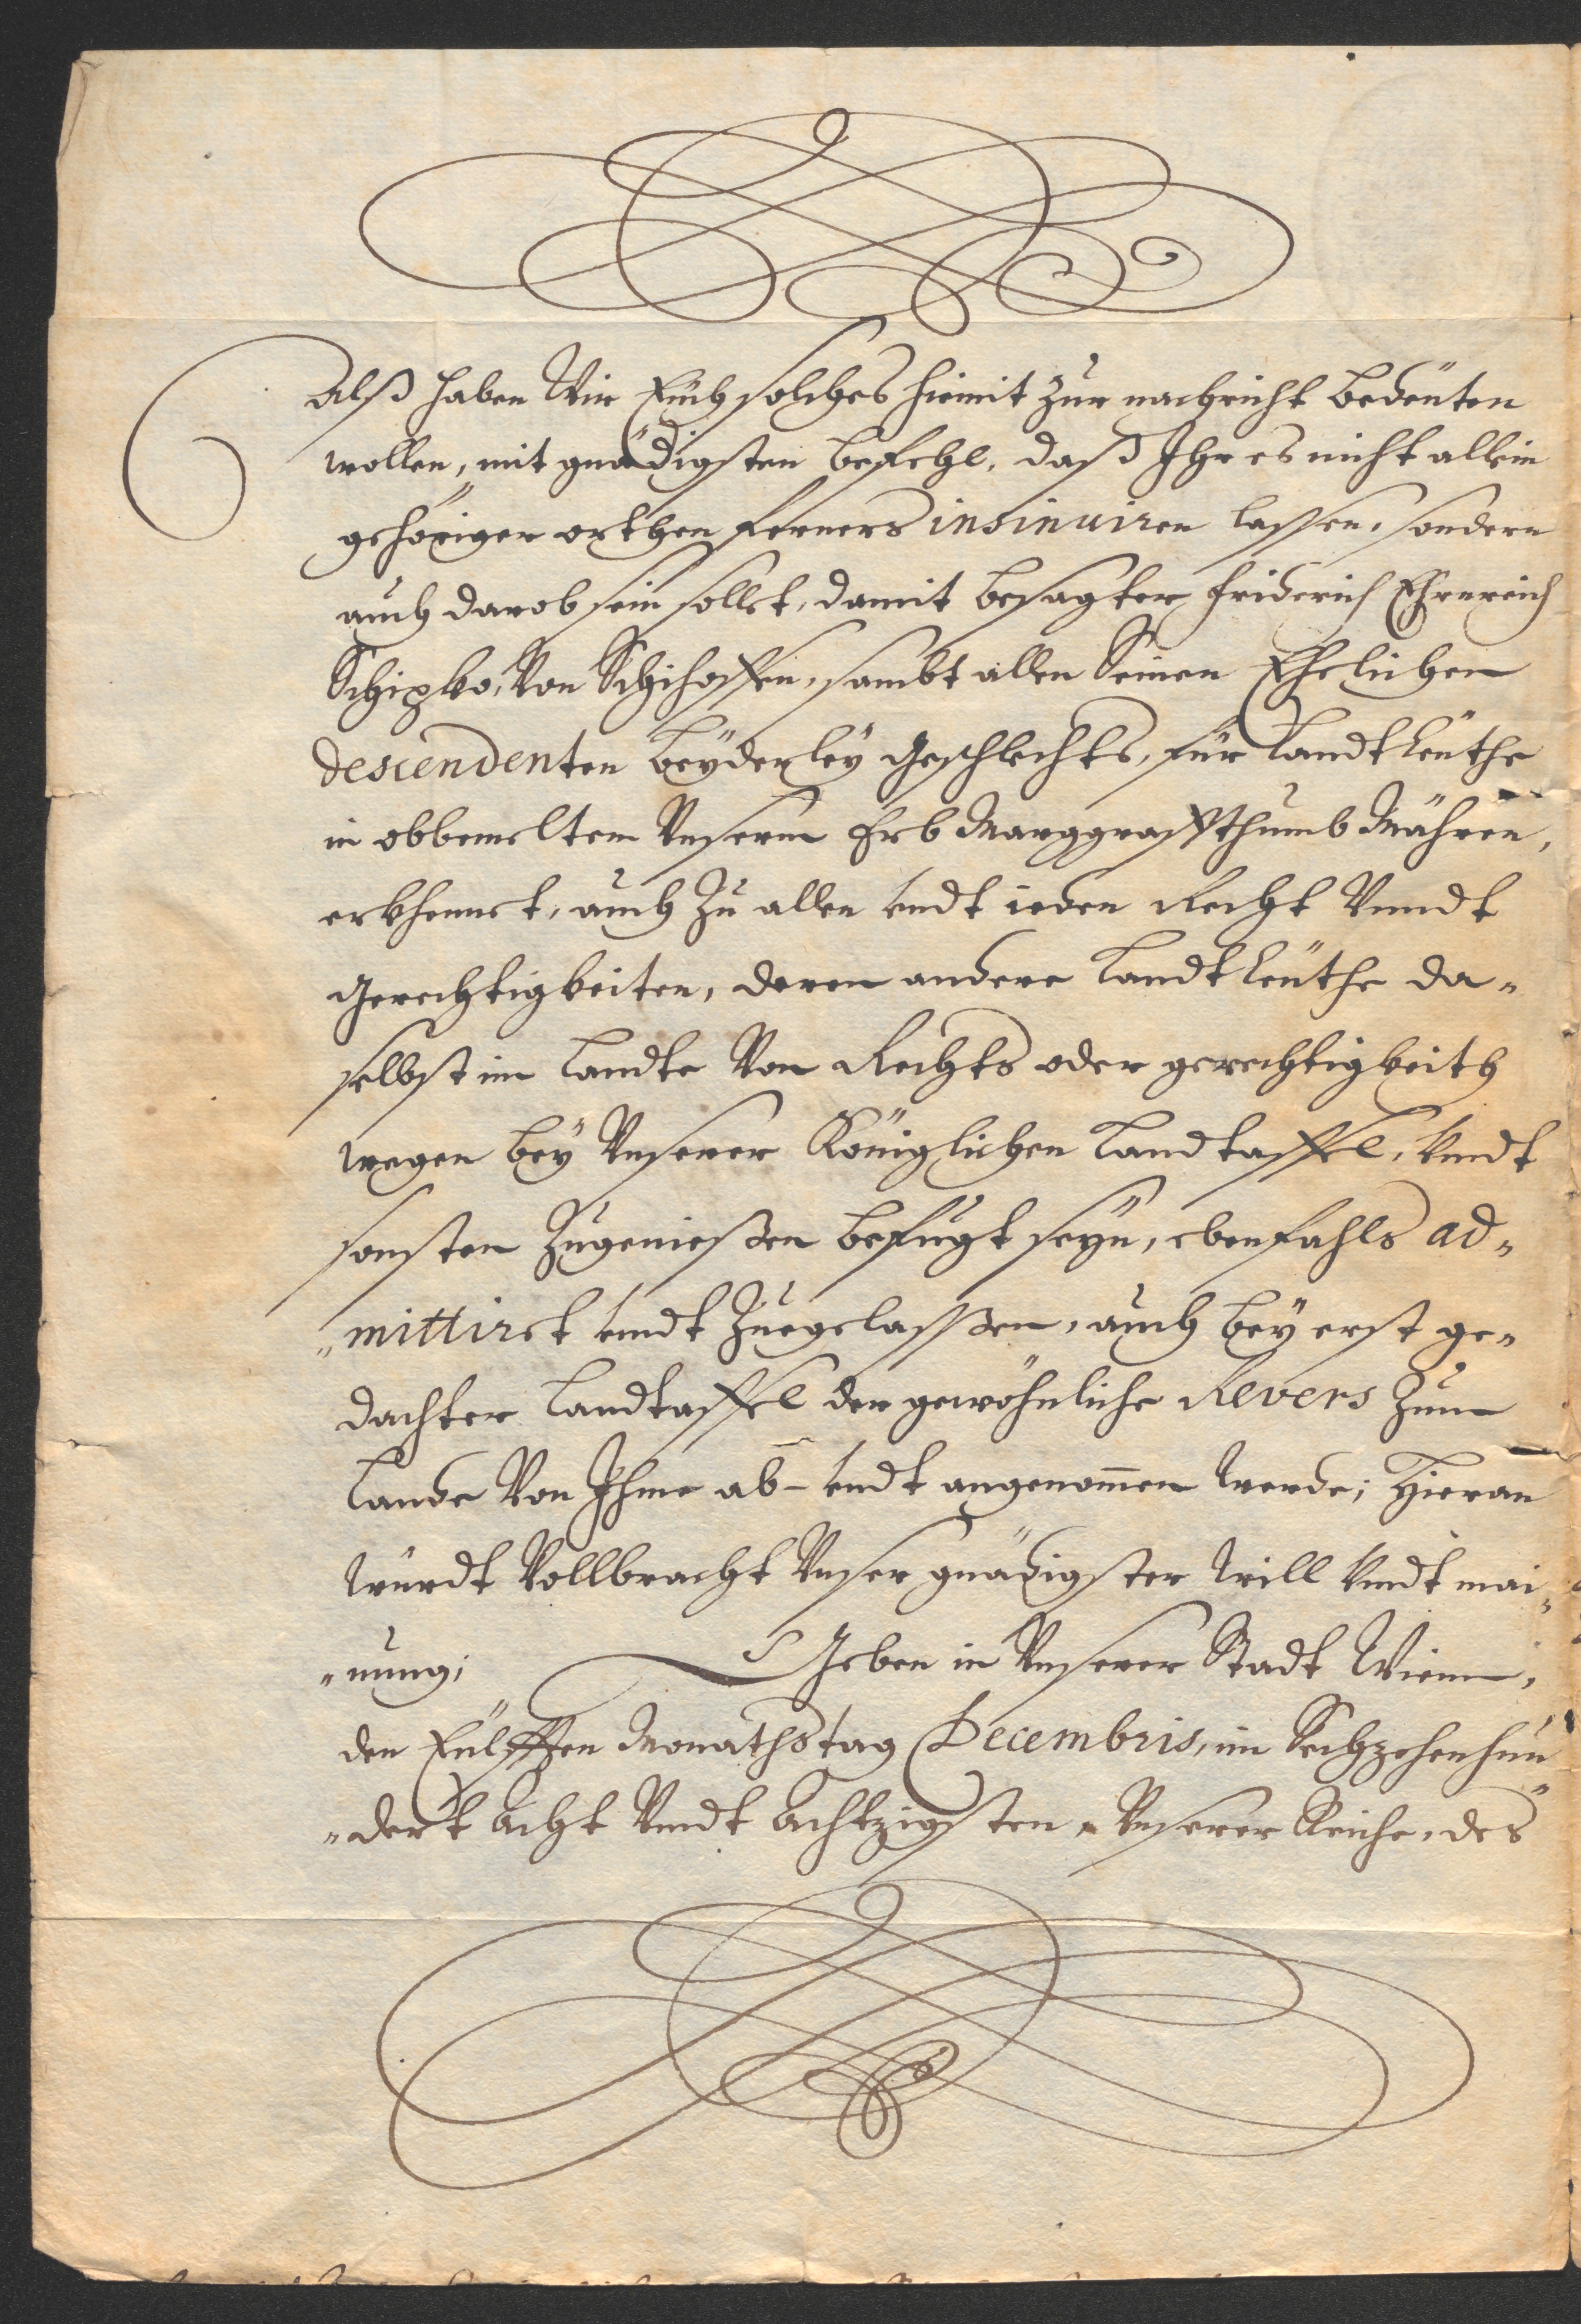 Alß haben Wir Eüch solches hiemit zur nachricht bedeüten
wollen, mit gnädigsten befehl, daß Ihr es nicht allein
gehöriger orthen ferners insinuiren lassen, sondern
auch darob sein sollet, damit besagter Friderich Ehrnreich
Schipko, Von Schihoffen, sambt allen Seinen Ehelichen
descendenten beÿderleÿ Geschlechts, für Landtleüthe
in obbemeltem Unserm Erb Marggraffthumb Mähren,
erkhennet, auch zu allen undt ieden Recht Vnndt
Gerechtigkeiten, deren andere Landtleüthe da„
selbst im Landte Von Rechts oder gerechtigkeith
wegen beÿ Unserer Königlichen Landtaffel, Vndt
sonsten zugenießen befugt seÿn, ebenfahls ad„
„mittiret undt zuegelaßen, auch beÿ erst ge„
dachter Landtaffel der gewöhnliche Revers zum
Lande Von Ihme ab- undt angenom̅en werde; Hieran
würdt Vollbracht Unser gnädigster will Vndt mai„
„nung; Geben in Unserer Stadt Wienn,
den Eülfften Monathstag Decembris, im Sechzehenhun„
„dert acht Vndt achtzigsten, Unserer Reiche, des